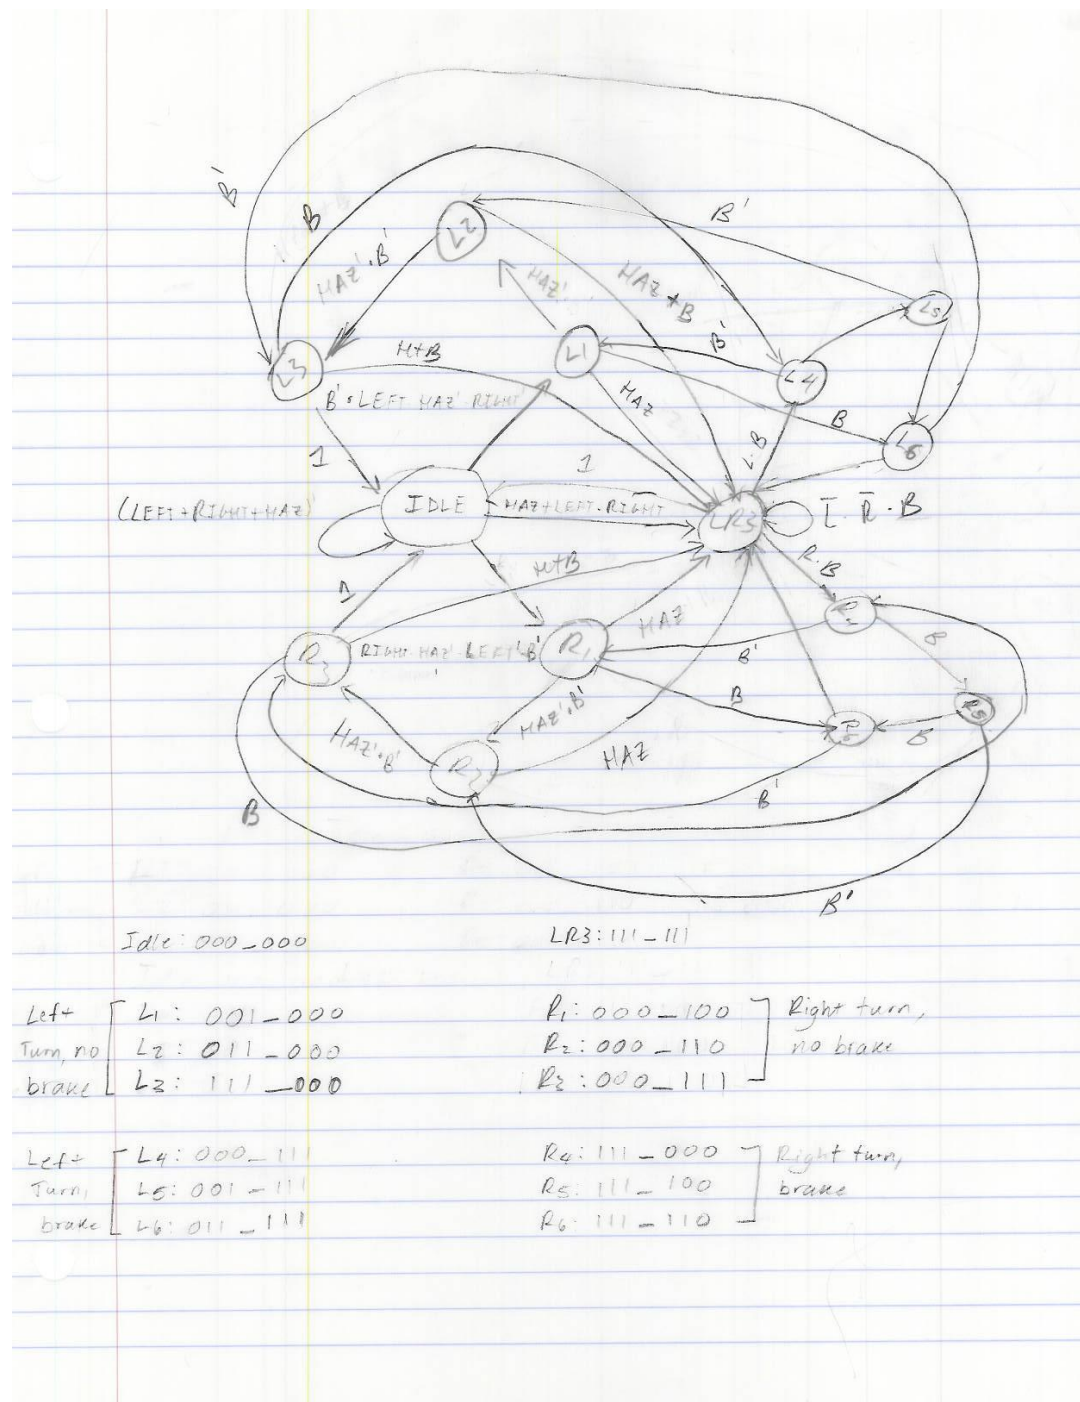 B'
B
L2
B'
HAZ'·B'
HAZ'
HAZ+B
L5
L3
H+B
L1
B'
L4
B'·LEFT·HAZ'·RIGHT'
HAZ
B
L6
1
L·B
1
(LEFT+RIGHT+HAZ)'
IDLE
HAZ+LEFT·RIGHT
LR3
L̅·R̅·B
R·B
H+B
1
HAZ
R3
RIGHT·HAZ'·LEFT'·B'
R1
B'
B
HAZ'·B'
B
R5
B
HAZ'·B'
R2
HAZ
B'
B
B'
Idle: 000_000
LR3: 111_111
Left
Turn, no
brake
L1: 001_000
L2: 011_000
L3: 111_000
R1: 000_100
R2: 000_110
R3: 000_111
Right turn,
no brake
Left
Turn,
brake
L4: 000_111
L5: 001_111
L6: 011_111
R4: 111_000
R5: 111_100
R6: 111_110
Right turn,
brake